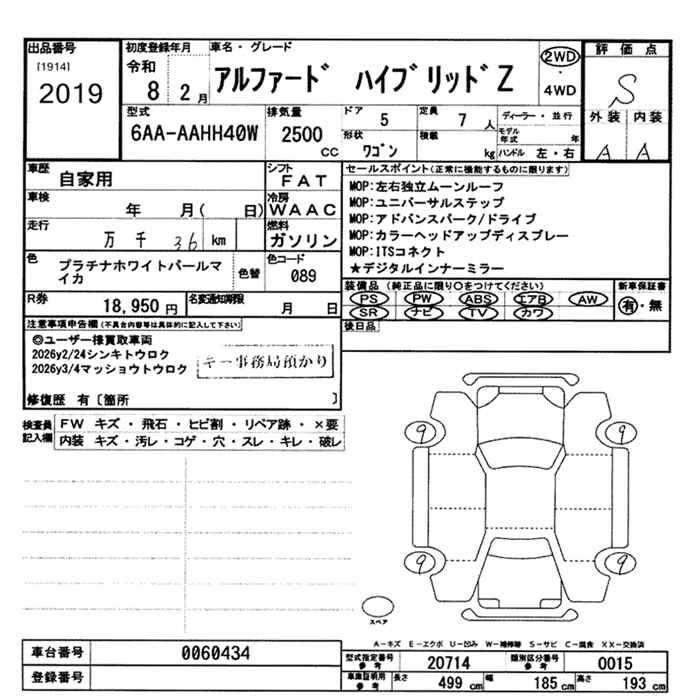 出品番号
[1914]
2019
初度登録年月
令和
8 2月
車名・グレード
アルファード ハイブリッドZ
2WD
・
4WD
評価点
S
外装 内装
A A
型式
6AA-AAHH40W
排気量
2500
cc
ドア
5
定員
7 人
ディーラー・並行
形状
ワゴン
積載
kg
モデル年式 年
ハンドル 左・右
車歴
自家用
シフト
FAT
車検
年 月( 日)
冷房
WAAC
走行
万 千 36 km
燃料
ガソリン
色
プラチナホワイトパールマイカ
色替
色コード
089
R券
18,950円
名変通知期限
月 日
セールスポイント(正常に機能するものに限ります)
MOP:左右独立ムーンルーフ
MOP:ユニバーサルステップ
MOP:アドバンスパーク/ドライブ
MOP:カラーヘッドアップディスプレー
MOP:ITSコネクト
★デジタルインナーミラー
装備品(純正品に限り○をつけてください)
PS PW ABS エアB AW
SR ナビ TV カワ
新車保証書
有・無
後日品
注意事項申告欄(不具合内容等は具体的に記入して下さい)
◎ユーザー様買取車両
2026y2/24シンキトウロク
2026y3/4マッショウトウロク
キー事務局預かり
修復歴 有〔箇所 〕
検査員記入欄
FW キズ・飛石・ヒビ割・リペア跡・×要
内装 キズ・汚レ・コゲ・穴・スレ・キレ・破レ
9 9
9 9
スペア
A-キズ E-エクボ U-凹み W-補修跡 S-サビ C-腐食 XX-交換済
車台番号
0060434
登録番号
型式指定番号参考
20714
類別区分番号参考
0015
車庫証明用参考
長さ 499 cm
幅 185 cm
高さ 193 cm